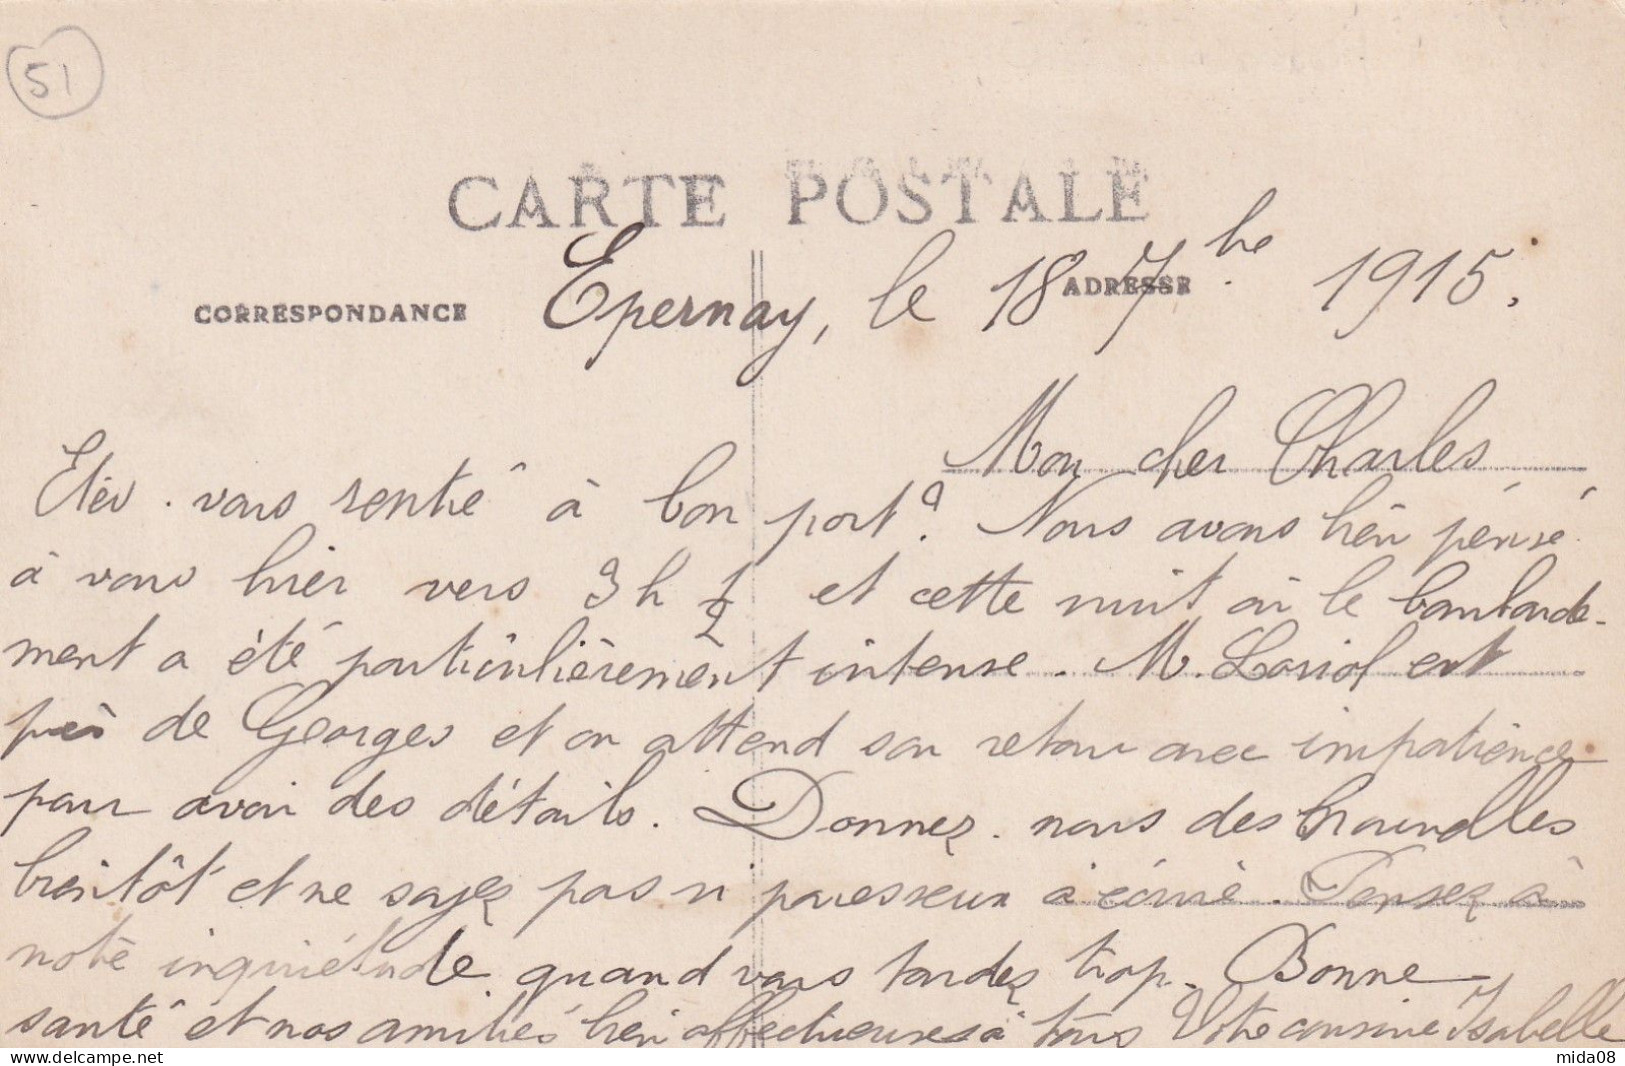 51
CARTE POSTALE
CORRESPONDANCE
ADRESSE
Epernay, le 18 7bre 1915.
Mon cher Charles,
Etes-vous rentré à bon port? Nous avons bien pensé
à vous hier vers 3h 1/2 et cette nuit où le bombarde-
ment a été particulièrement intense. M. Loriol est
près de Georges et on attend son retour avec impatience
pour avoir des détails. Donnez-nous des nouvelles
bientôt et ne soyez pas si paresseux à écrire. Pensez à
notre inquiétude quand vous tardez trop. Bonne
santé et nos amitiés bien affectueuses à tous Votre cousine Isabelle
mida08